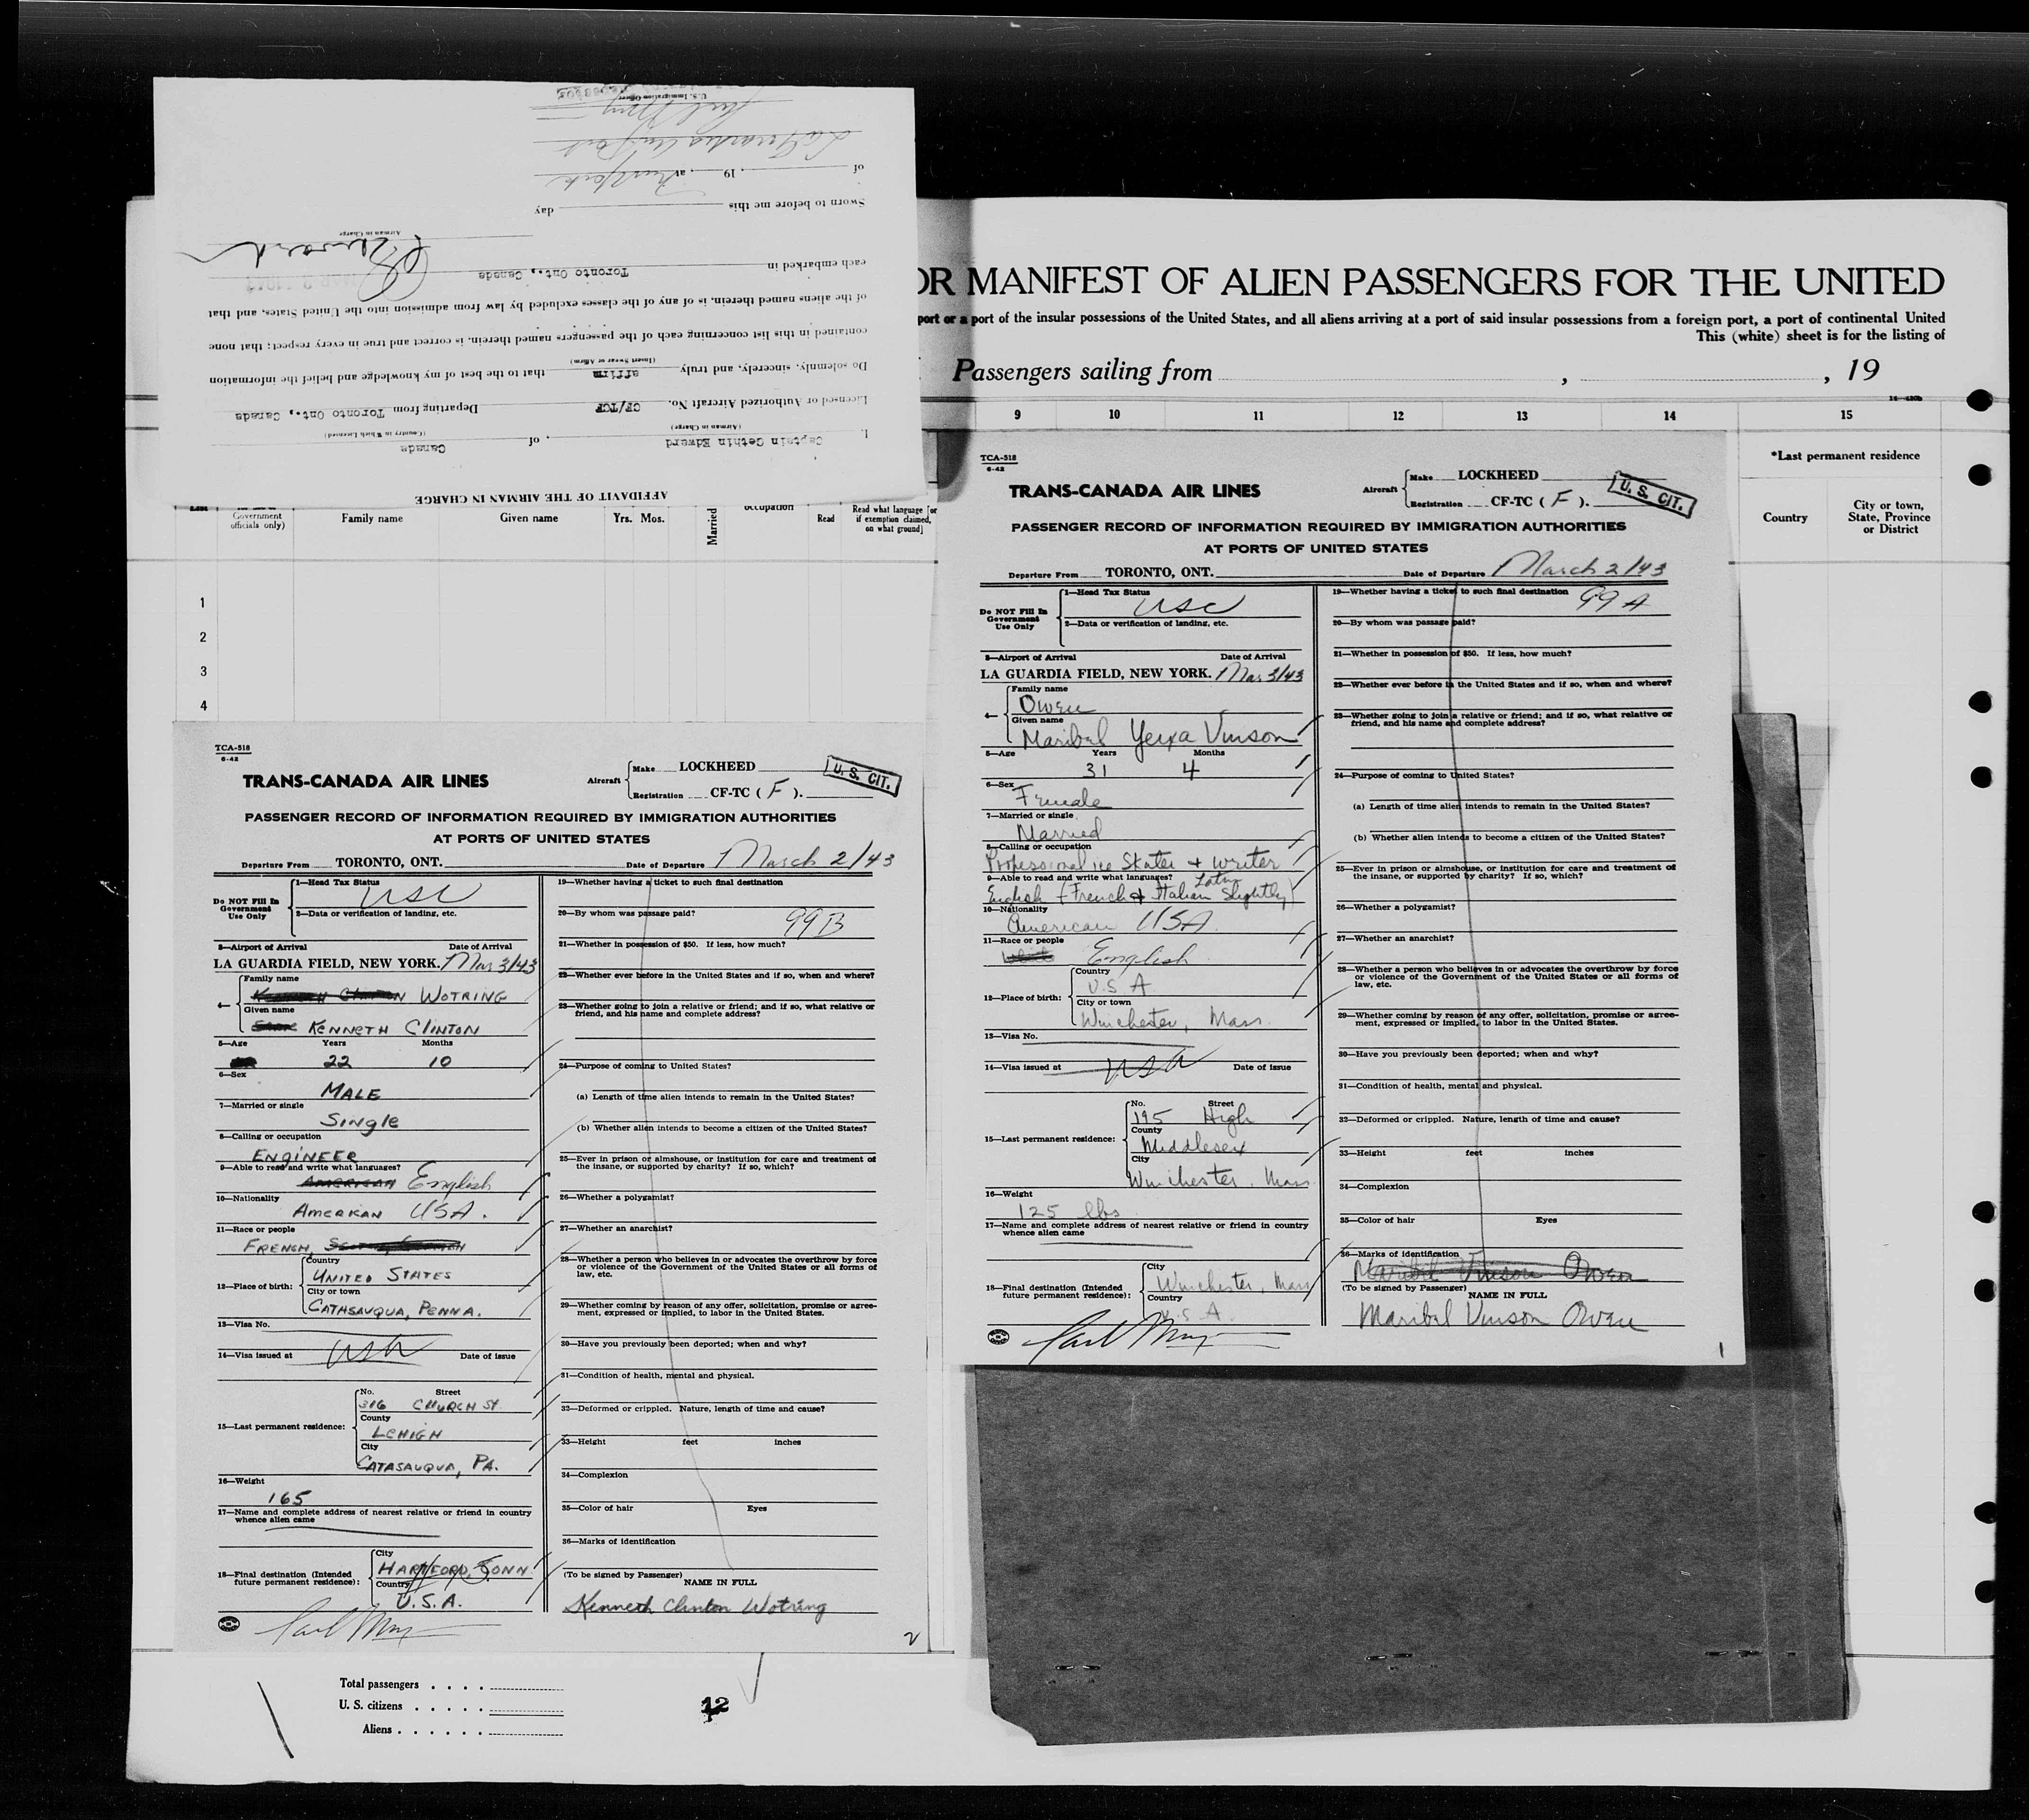 AFFIDAVIT OF THE AIRMAN IN CHARGE
I, Captain Gethin Edward, of Canada
(Airman in Charge) (Country in Which Licensed)
Licensed or Authorized Aircraft No. CF/TCF Departing from Toronto Ont., Canada
Do solemnly, sincerely, and truly affirm that to the best of my knowledge and belief the information
(Insert Swear or Affirm)
contained in this list concerning each of the passengers named therein, is correct and true in every respect; that none
of the aliens named therein, is of any of the classes excluded by law from admission into the United States, and that
each embarked in Toronto Ont., Canada
Airman in Charge
Sworn to before me this day
of , 19 , at New York
LaGuardia
U.S. Immigration Officer
OR MANIFEST OF ALIEN PASSENGERS FOR THE UNITED
port or a port of the insular possessions of the United States, and all aliens arriving at a port of said insular possessions from a foreign port, a port of continental United
This (white) sheet is for the listing of
Passengers sailing from , , 19
9 10 11 12 13 14 15
*Last permanent residence
Country
City or town, State, Province or District
Government officials only)
Family name
Given name
Yrs. Mos.
Married
occupation
Read
Read what language [or if exemption claimed, on what ground]
1
2
3
4
TCA-518
6-42
TRANS-CANADA AIR LINES
Aircraft Make LOCKHEED
Registration CF-TC ( F ).
U. S. CIT.
PASSENGER RECORD OF INFORMATION REQUIRED BY IMMIGRATION AUTHORITIES
AT PORTS OF UNITED STATES
Departure From TORONTO, ONT. Date of Departure March 2/43
Do NOT Fill In Government Use Only
1—Head Tax Status
USC
2—Data or verification of landing, etc.
3—Airport of Arrival Date of Arrival
LA GUARDIA FIELD, NEW YORK. Mar 3/43
4— Family name
WOTRING
Given name
KENNETH CLINTON
5—Age Years Months
22 10
6—Sex
MALE
7—Married or single
Single
8—Calling or occupation
ENGINEER
9—Able to read and write what languages?
AMERICAN English
10—Nationality
AMERICAN USA.
11—Race or people
FRENCH,
12—Place of birth: Country
UNITED STATES
City or town
CATASAUQUA, PENNA.
13—Visa No.
14—Visa issued at Date of issue
USA
15—Last permanent residence: No. Street
316 CHURCH St.
County
LEHIGH
City
CATASAUQUA, PA.
16—Weight
165
17—Name and complete address of nearest relative or friend in country whence alien came
18—Final destination (Intended future permanent residence): City
HARTFORD, CONN
Country
U.S.A.
19—Whether having a ticket to such final destination
20—By whom was passage paid?
99B
21—Whether in possession of $50. If less, how much?
22—Whether ever before in the United States and if so, when and where?
23—Whether going to join a relative or friend; and if so, what relative or friend, and his name and complete address?
24—Purpose of coming to United States?
(a) Length of time alien intends to remain in the United States?
(b) Whether alien intends to become a citizen of the United States?
25—Ever in prison or almshouse, or institution for care and treatment of the insane, or supported by charity? If so, which?
26—Whether a polygamist?
27—Whether an anarchist?
28—Whether a person who believes in or advocates the overthrow by force or violence of the Government of the United States or all forms of law, etc.
29—Whether coming by reason of any offer, solicitation, promise or agreement, expressed or implied, to labor in the United States.
30—Have you previously been deported; when and why?
31—Condition of health, mental and physical.
32—Deformed or crippled. Nature, length of time and cause?
33—Height feet inches
34—Complexion
35—Color of hair Eyes
36—Marks of identification
(To be signed by Passenger)
NAME IN FULL
Kenneth Clinton Wotring
2
Total passengers
U. S. citizens
Aliens
12
TCA-518
6-42
TRANS-CANADA AIR LINES
Aircraft Make LOCKHEED
Registration CF-TC ( F ).
U. S. CIT.
PASSENGER RECORD OF INFORMATION REQUIRED BY IMMIGRATION AUTHORITIES
AT PORTS OF UNITED STATES
Departure From TORONTO, ONT. Date of Departure March 2/43
Do NOT Fill In Government Use Only
1—Head Tax Status
USC
2—Data or verification of landing, etc.
3—Airport of Arrival Date of Arrival
LA GUARDIA FIELD, NEW YORK. Mar 3/43
4— Family name
Owen
Given name
Maribel Yerxa Vinson
5—Age Years Months
31 4
6—Sex
Female
7—Married or single
Married
8—Calling or occupation
Professional ice Skater + writer
9—Able to read and write what languages?
English (French + Italian Latin Slightly)
10—Nationality
American USA
11—Race or people
English
12—Place of birth: Country
U.S A.
City or town
Winchester, Mass.
13—Visa No.
14—Visa issued at Date of issue
USA
15—Last permanent residence: No. Street
195 High
County
Middlesex
City
Winchester, Mass
16—Weight
125 lbs
17—Name and complete address of nearest relative or friend in country whence alien came
18—Final destination (Intended future permanent residence): City
Winchester, Mass
Country
U.S.A.
19—Whether having a ticket to such final destination
99 A
20—By whom was passage paid?
21—Whether in possession of $50. If less, how much?
22—Whether ever before in the United States and if so, when and where?
23—Whether going to join a relative or friend; and if so, what relative or friend, and his name and complete address?
24—Purpose of coming to United States?
(a) Length of time alien intends to remain in the United States?
(b) Whether alien intends to become a citizen of the United States?
25—Ever in prison or almshouse, or institution for care and treatment of the insane, or supported by charity? If so, which?
26—Whether a polygamist?
27—Whether an anarchist?
28—Whether a person who believes in or advocates the overthrow by force or violence of the Government of the United States or all forms of law, etc.
29—Whether coming by reason of any offer, solicitation, promise or agreement, expressed or implied, to labor in the United States.
30—Have you previously been deported; when and why?
31—Condition of health, mental and physical.
32—Deformed or crippled. Nature, length of time and cause?
33—Height feet inches
34—Complexion
35—Color of hair Eyes
36—Marks of identification
Maribel Vinson Owen
(To be signed by Passenger)
NAME IN FULL
Maribel Vinson Owen
1